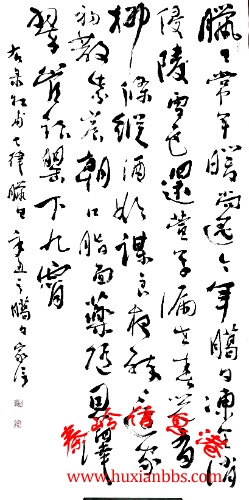 臘日常年暖尚遥今年臘日凍全消
侵陵雪色還萱草漏泄春光有
柳條縱酒欲謀良夜醉還家
初散紫宸朝口脂面藥隨恩澤
翠管銀罌下九霄
右录杜甫七律臘日
www.huxianbbs.com